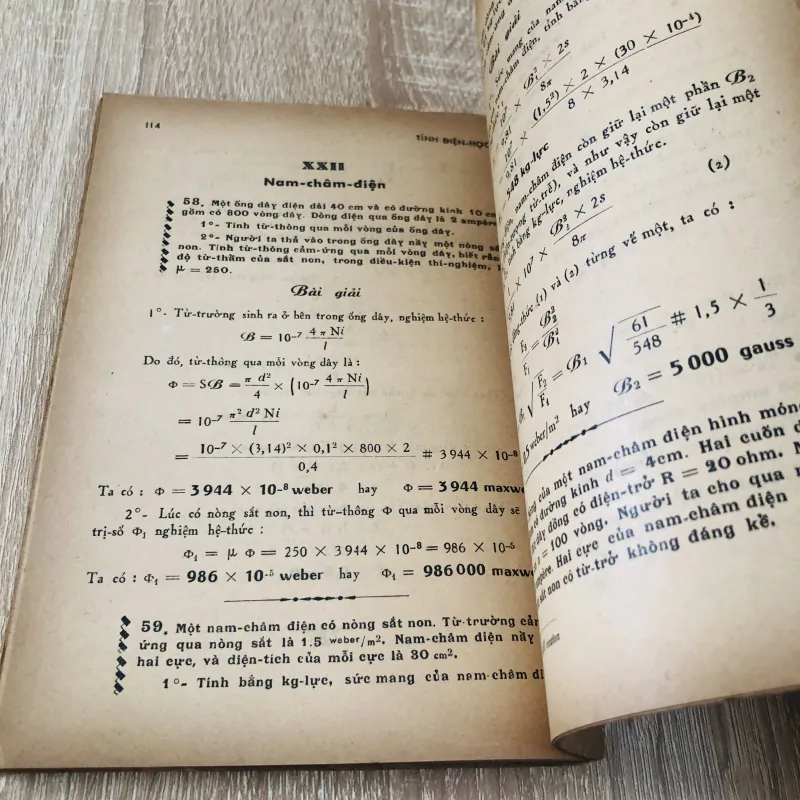 114
TĨNH ĐIỆN-HỌC
XXII
Nam-châm-điện
58. Một ống dây điện dài 40 cm và có đường kính 10 cm
gồm có 800 vòng dây. Dòng điện qua ống dây là 2 ampère
1°- Tính từ-thông qua mỗi vòng của ống dây.
2°- Người ta thả vào trong ống dây nầy một nòng sắt
non. Tính từ-thông cảm-ứng qua mỗi vòng dây, biết rằng
độ từ-thẩm của sắt non, trong điều-kiện thí-nghiệm,
μ = 250.
Bài giải
1°- Từ-trường sinh ra ở bên trong ống dây, nghiệm hệ-thức :
B = 10⁻⁷ 4 π Ni / l
Do đó, từ-thông qua mỗi vòng dây là :
Φ = SB = π d² / 4 × (10⁻⁷ 4 π Ni / l)
= 10⁻⁷ π² d² Ni / l
= 10⁻⁷ × (3,14)² × 0,1² × 800 × 2 / 0,4 # 3 944 × 10⁻⁸
Ta có : Φ = 3 944 × 10⁻⁸ weber hay Φ = 3944 maxw
2°- Lúc có nòng sắt non, thì từ-thông Φ qua mỗi vòng dây sẽ
trị-số Φ₁ nghiệm hệ-thức :
Φ₁ = μ Φ = 250 × 3 944 × 10⁻⁸ = 986 × 10⁻⁵
Ta có : Φ₁ = 986 × 10⁻⁵ weber hay Φ₁ = 986 000 maxw
59. Một nam-châm điện có nòng sắt non. Từ-trường cảm
ứng qua nòng sắt là 1.5 weber/m². Nam-châm điện nầy
hai cực, và diện-tích của mỗi cực là 30 cm².
1°- Tính bằng kg-lực, sức mang của nam-châm đi
Bài giải
sức mang của nam
châm điện, tính bằng
× B₁² × 2s / 8π
(1,5²) × 2 × (30 × 10⁻⁴) / 8 × 3,14
548 kg-lực
nam-châm điện còn giữ lại một phần B₂
từ-trễ), và như vậy còn giữ lại một
tính bằng kg-lực, nghiệm hệ-thức.
10⁷ × B₂² × 2s / 8π (2)
thức (1) và (2) từng vế một, ta có :
F₂ / F₁ = B₂² / B₁²
√ F₂ / F₁ = B₁ √ 61 / 548 # 1,5 × 1 / 3
weber/m² hay B₂ = 5 000 gauss
của một nam-châm điện hình móng
đường kính d = 4cm. Hai cuồn
dây đồng có điện-trở R = 20 ohm.
n = 100 vòng. Người ta cho qua
ampère. Hai cực của nam-châm điện
sắt non có từ-trở không đáng kể.